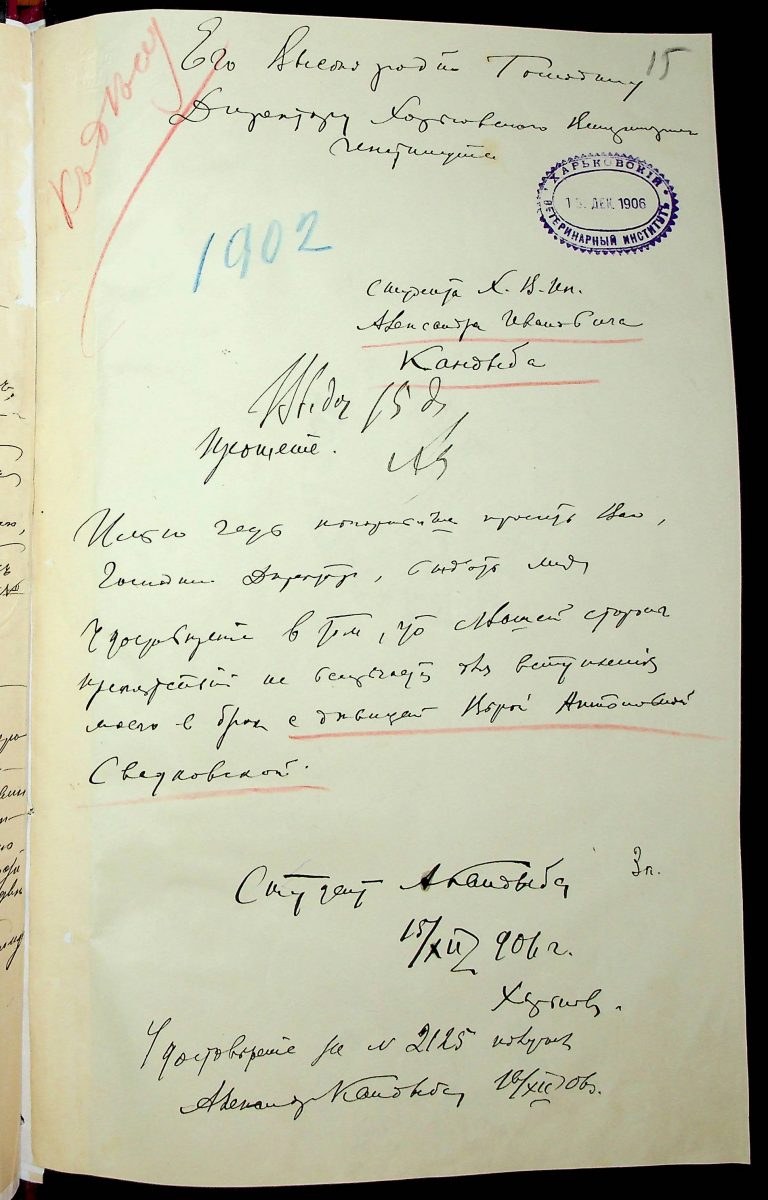 15
Его Высокородію Господину
Директору Харьковского Ветеринарн
Института
къ дѣлу
ХАРЬКОВСКІЙ
15 ДЕК. 1906
ВЕТЕРИНАРНЫЙ ИНСТИТУТЪ
1902
студента Х. В. Ин.
Александра Ивановича
Кандыба
15 д
Прошеніе.
Имѣю честь покорнѣйше просить Вас,
Господин Директор, выдать мнѣ
Удостовѣреніе в том, что с Вашей стороны
препятствій не встрѣчается для вступленія
моего в брак с дѣвицей Вѣрой Антоновной
Свадковской.
Студент А Кандыба
3п.
15/XII 906 г.
Харьков.
Удостовѣреніе за № 2125 получил
Александр Кандыба 18/XII 906.